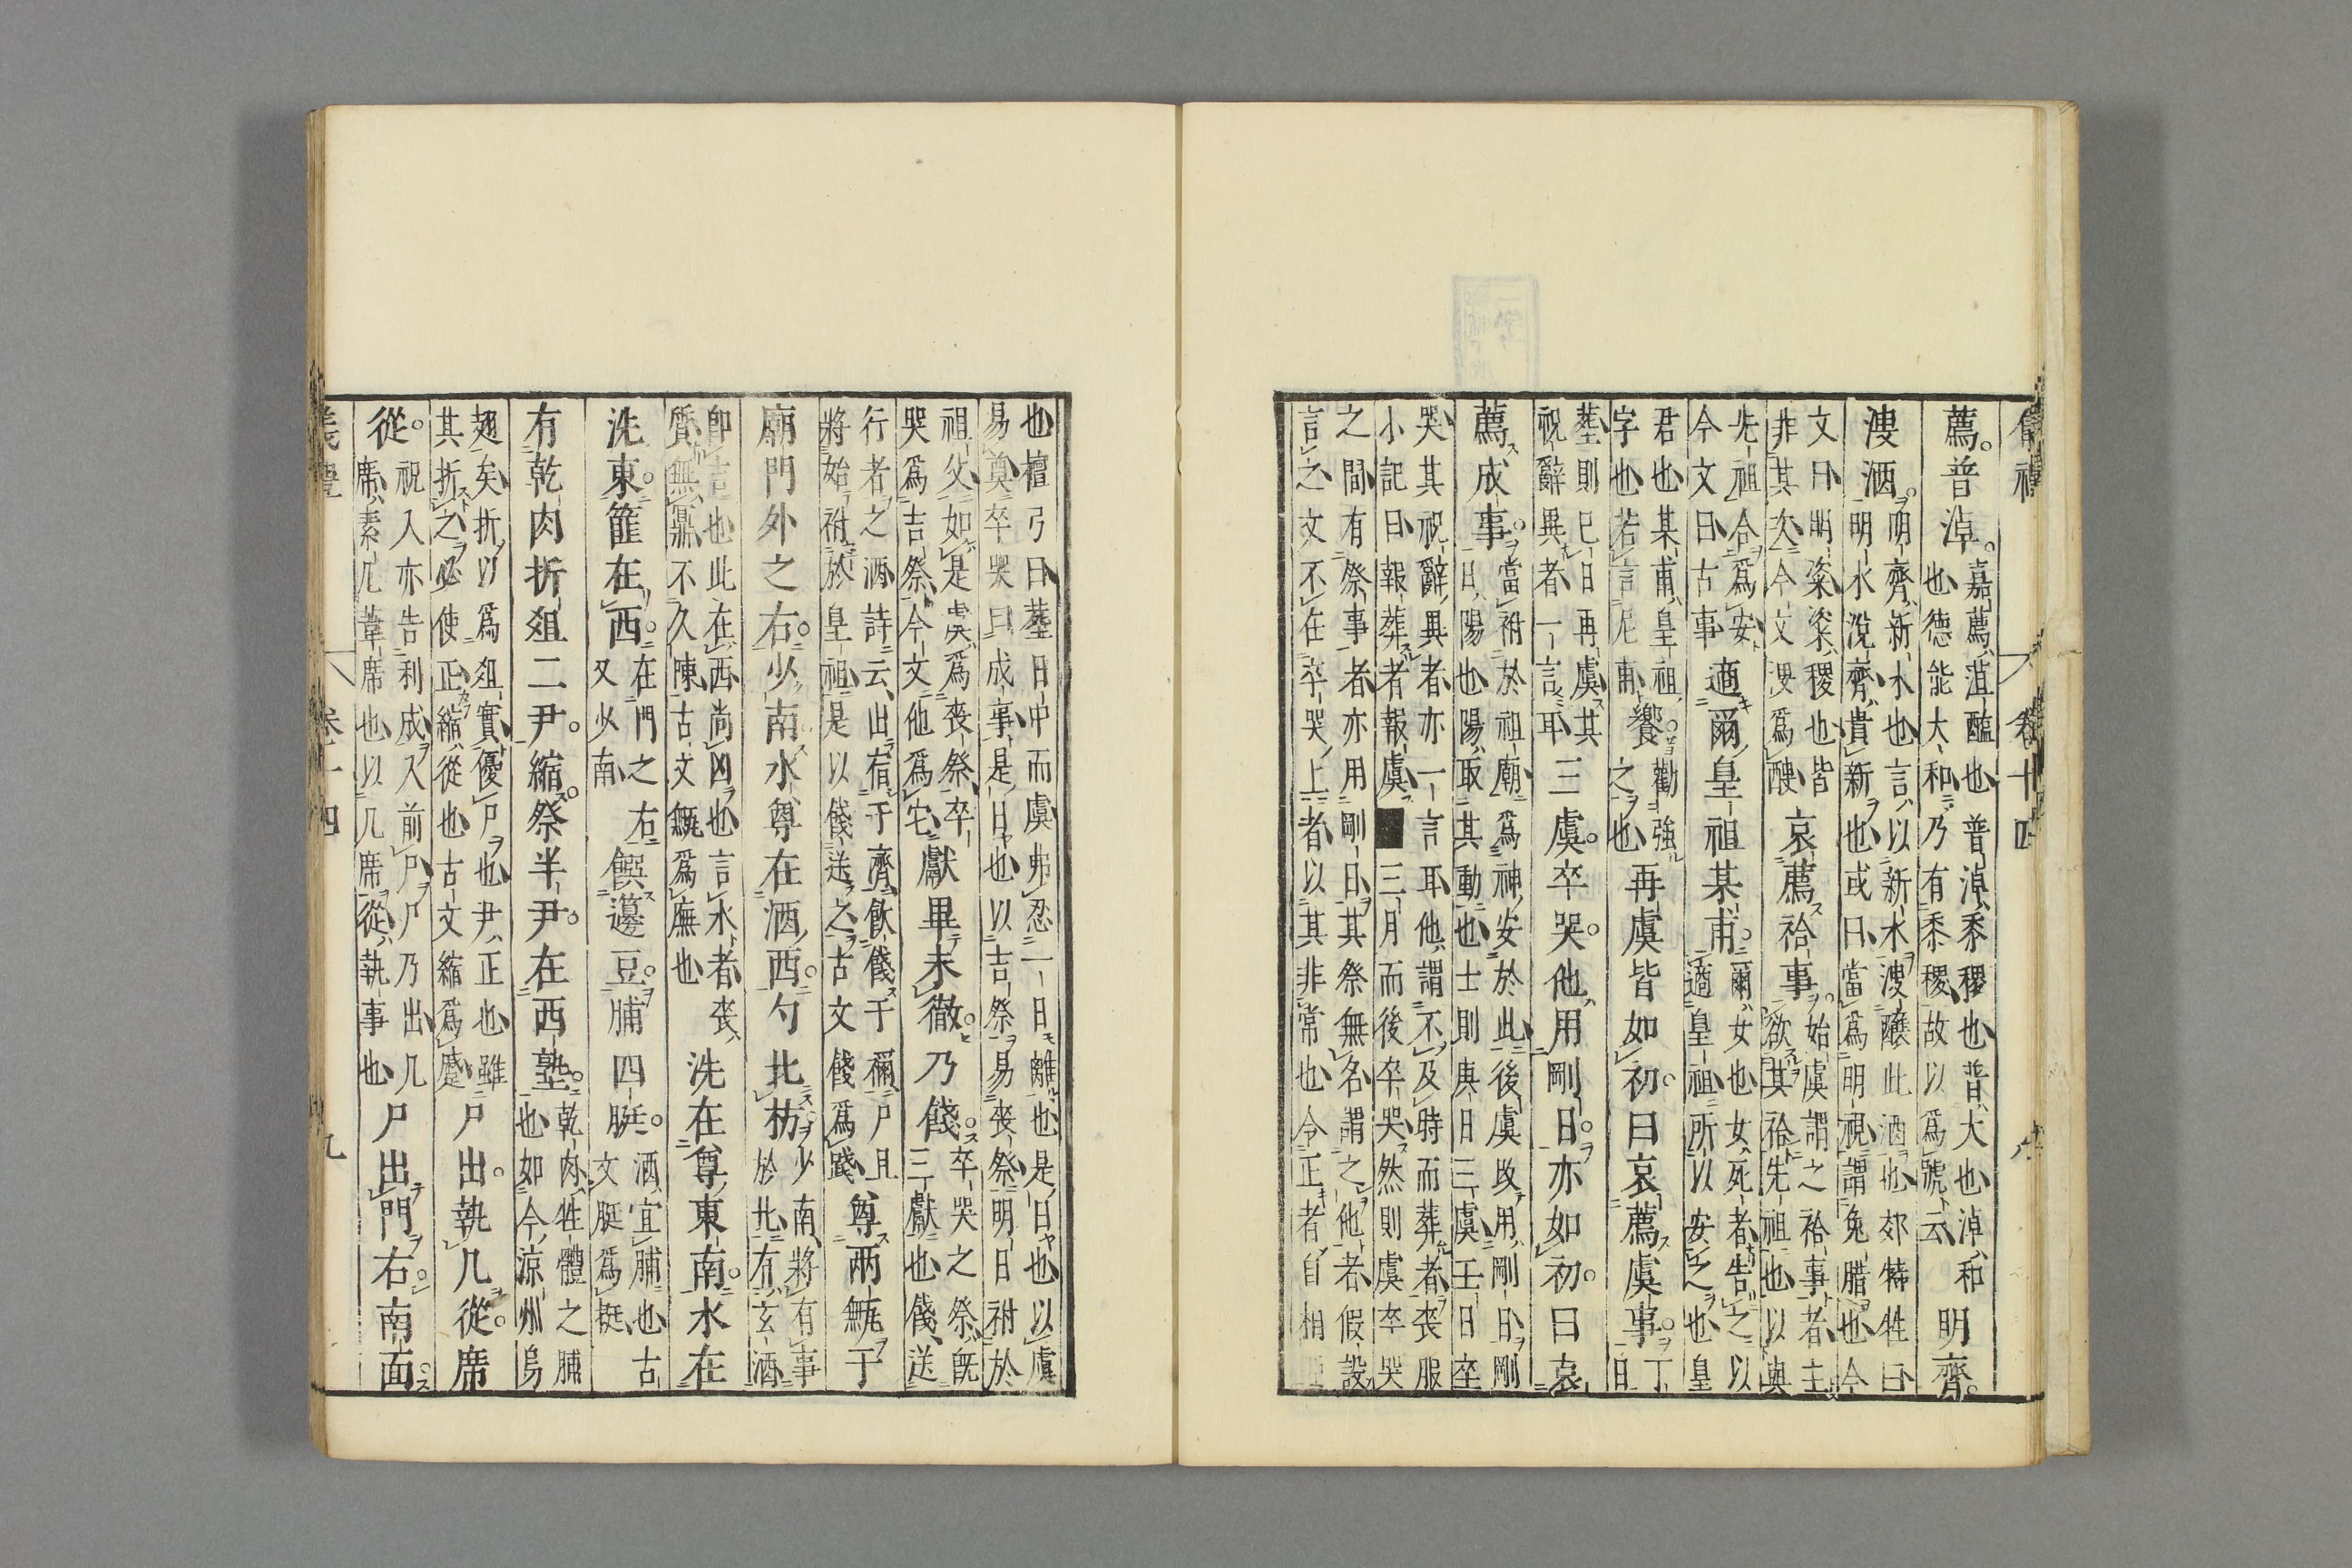 儀禮 卷十四 八
薦。普淖。嘉薦菹醢也普淖黍稷也普大也淖和也德能大和乃有黍稷故以爲號云明齊。
溲酒。明齊新水也言以新水溲釀此酒也郊特牲曰明水涚齊貴新也或曰當爲明視謂兔腊也今
文曰明粢粢稷也皆非其次今文溲爲醙哀薦祫事。始虞謂之祫事者主欲其祫先祖也以與
先祖合爲安今文曰古事適爾皇祖某甫。爾女也女死者告之以適皇祖所以安之也皇
君也某甫皇祖字也若言尼甫饗。勸強之也再虞皆如初。曰哀薦虞事。丁日
葬則已日再虞其祝辭異者一言耳三虞。卒哭。他用剛日。亦如初。曰哀
薦成事。當祔於祖廟爲神安於此後虞改用剛日剛日陽也陽取其動也士則庚日三虞壬日卒
哭其祝辭異者亦一言耳他謂不及時而葬者喪服小記曰報葬者報虞■三月而後卒哭然則虞卒哭
之間有祭事者亦用剛日其祭無名謂之他者假設言之文不在卒哭上者以其非常也令正者自相
也檀弓曰葬日中而虞弗忍一日離也是日也以虞易奠卒哭曰成事是日也以吉祭易喪祭明日祔於
祖父如是虞爲喪祭卒哭爲吉祭今文他爲宅獻畢未徹。乃餞。卒哭之祭既三獻也餞送
行者之酒詩云出宿于濟飲餞于禰尸且將始祔於皇祖是以餞送之古文餞爲踐尊兩甒于
廟門外之右。少南水尊在酒西。勺北枋。少南將有事於北有玄酒
即吉也此在西尚凶也言水者喪質無鼏不久陳古文甒爲廡也洗在尊東南。水在
洗東。篚在西。在門之右又少南饌籩豆。脯四脡。酒宜脯也古文脡爲挺
有乾肉折俎二尹。縮。祭半尹。在西塾。乾肉牲體之脯也如今涼州烏
翅矣折以爲俎實優尸也尹正也雖其折之必使正縮從也古文縮爲蹙尸出。執几從。席
從。祝入亦告利成入前尸尸乃出几席素几葦席也以几席從執事也尸出門右。南面。
儀禮 卷十四 九